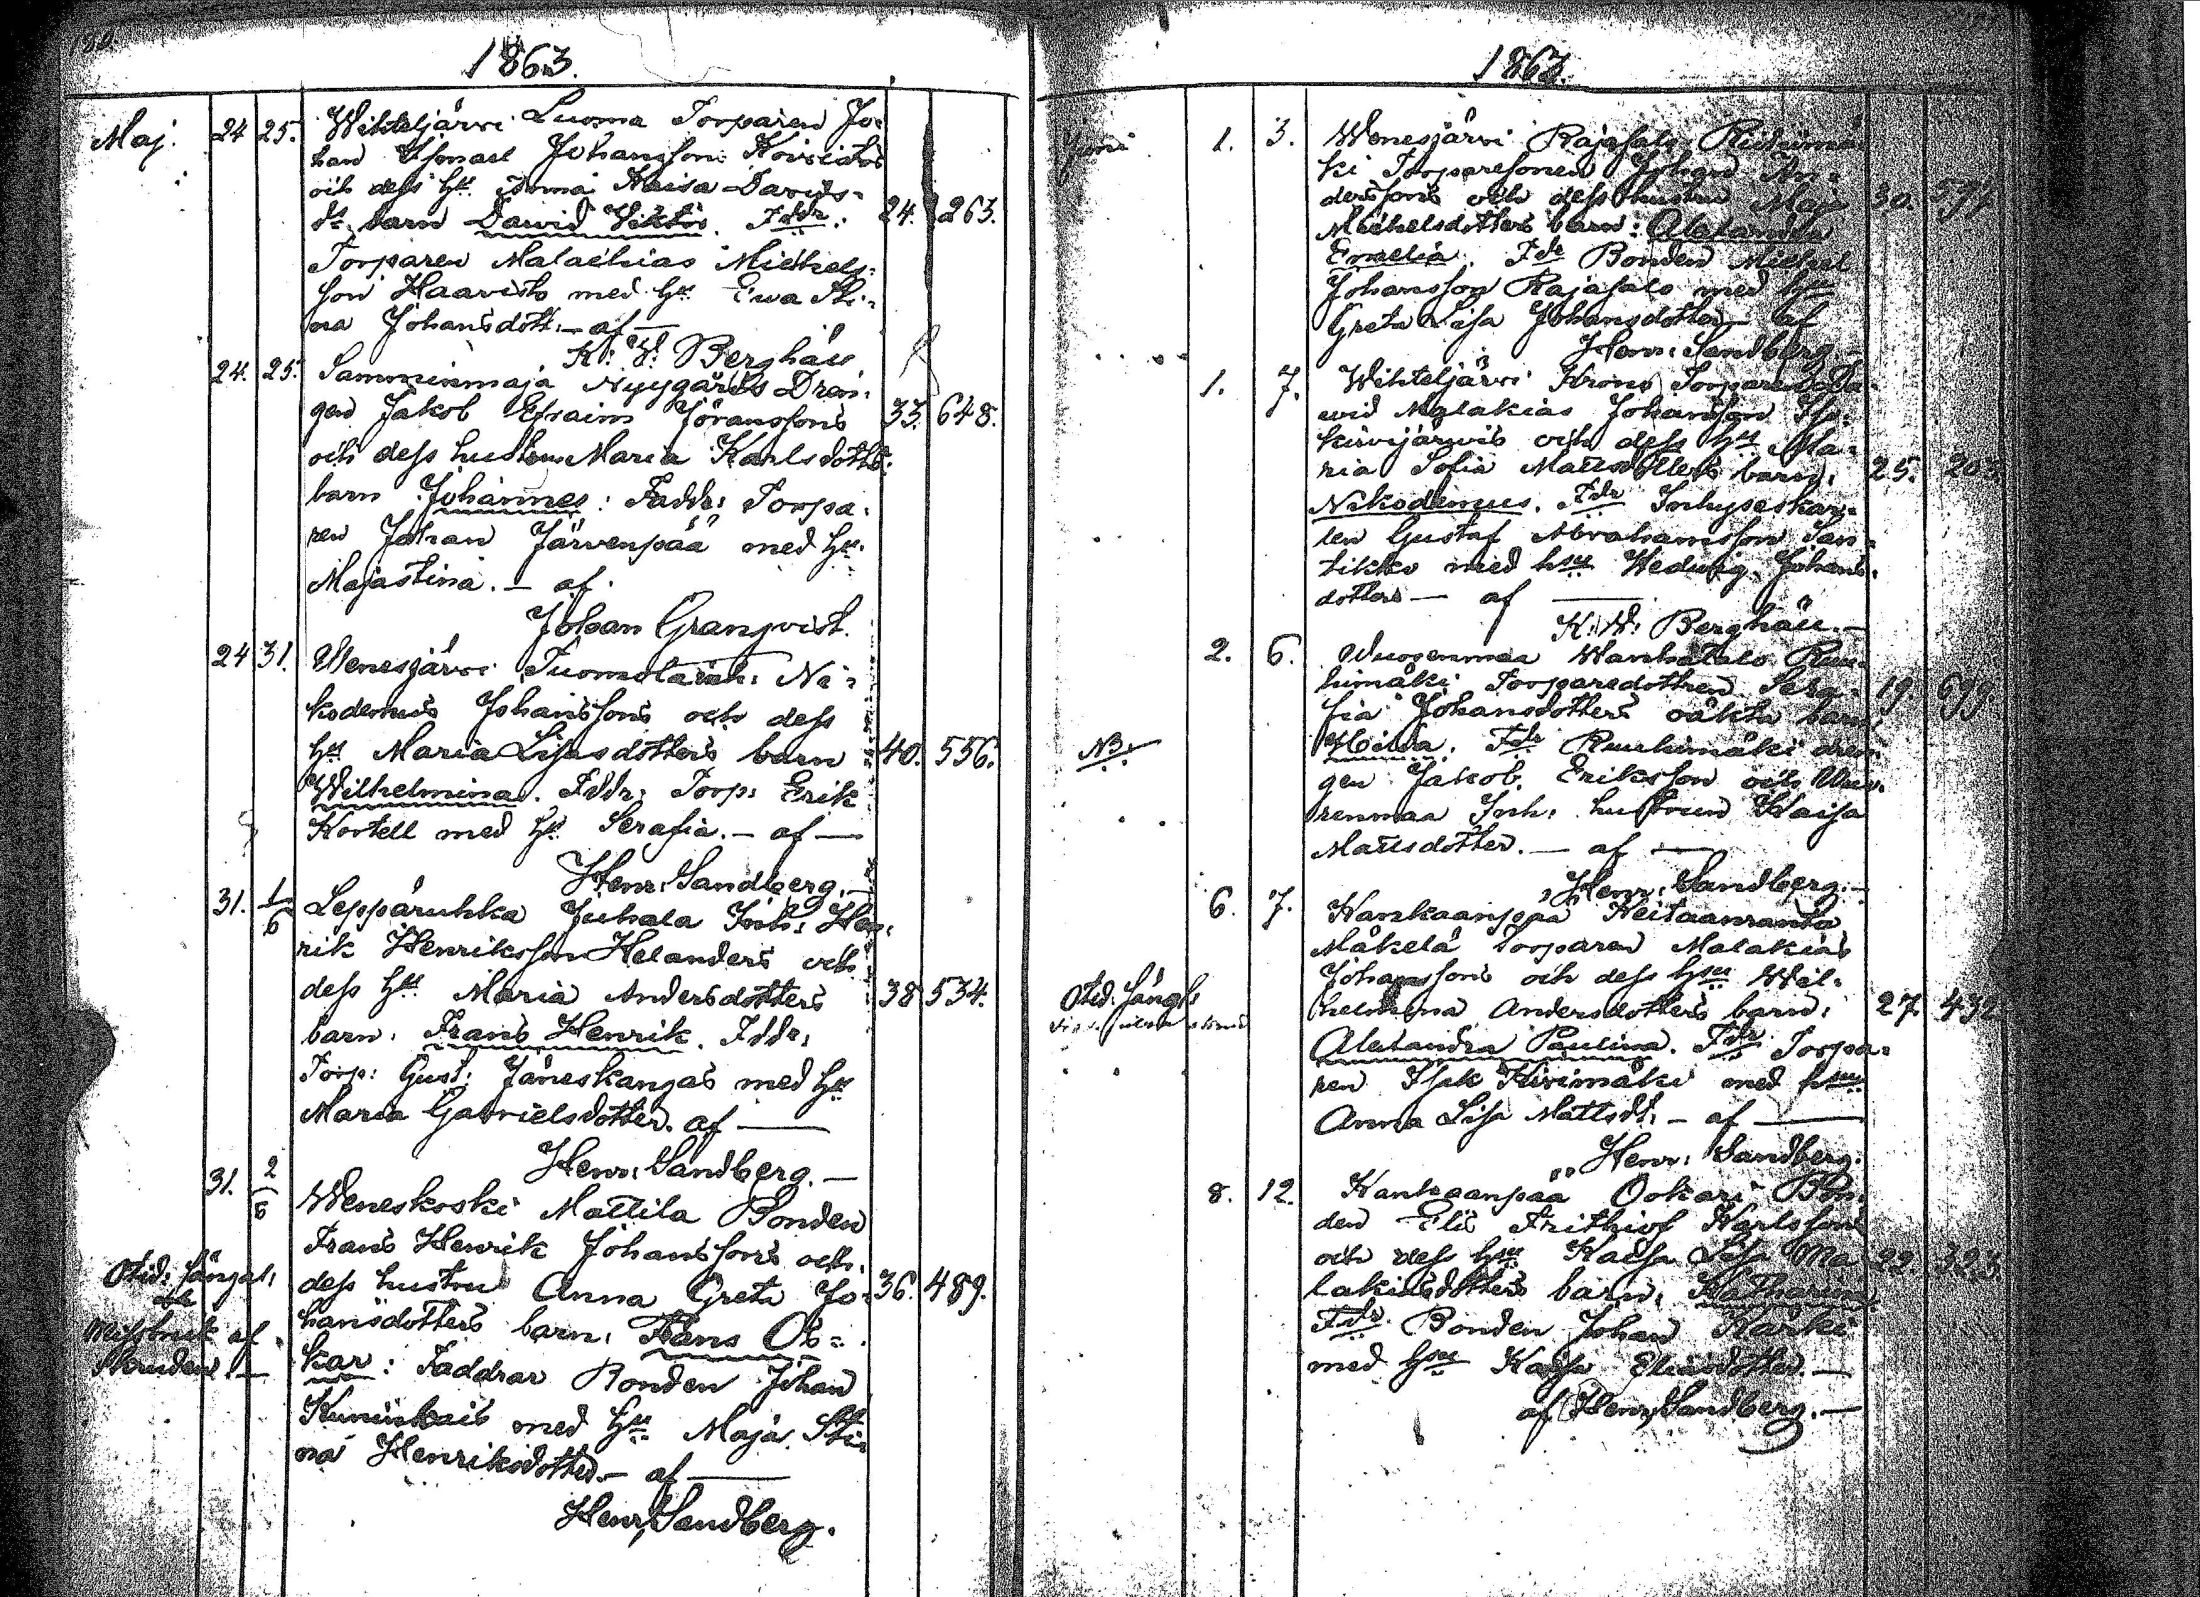 180.
1863.
Maj. 24 25. Wihteljärvi Luoma Torparen Jo-
han Ismael Johansson Koivistos
och dess hu Anna Kaisa Davids-
dr barn David Viktor. Fddr: 24. 263.
Torparen Malachias Michels-
son Haavisto med hu Eva Sti-
na Johansdott. — af —
K: W: Berghäll
24. 25. Samminmaja Nyygårds Drän-
gen Jakob Efraim Göranssons 33. 648.
och dess hustru Maria Karlsdotts
barn Johannes: Faddr: Torpa-
ren Johan Järvenpää med hu
Majastina. — af.
Johan Granqvist.
24 31. Wenesjärvi Tuomola inh: Ni-
kodemus Johanssons och dess
hu Maria Lisasdotters barn 40. 556.
Wilhelmina. Fddr: Torp: Erik
Kortell med hu Serafia. — af —
Henr: Sandberg. —
31. 1/6 Leppäruhka Juhala Inh: Hen-
rik Henriksson Helanders och
dess hu Maria Andersdotters 38 534.
barn: Frans Henrik. Fddr:
Torp: Gust: Jäneskangas med hu
Maria Gabrielsdotter. af —
Henr: Sandberg. —
31. 2/6 Weneskoski Mattila Bonden
Frans Henrik Johanssons och
Otid: sängel: dess hustru Anna Greta Jo- 36. 489.
hansdotters barn: Frans Os-
Missbruk af kar: Faddrar Bonden Johan
med hu Maja Sti-
na Henriksdotter. — af —
Henr: Sandberg.
1863.
Juni 1. 3. Wenesjärvi Rajasalo Riihimä-
ki Torparesonen Johan An-
derssons och dess hustru Maja 30. 597
Michelsdotters barn: Alexandra
Emelia. Fdr Bonden Michel
Johansson Rajasalo med hu
Greta Lisa Johansdotter — af
Henr: Sandberg. —
1. 7. Wihteljärvi Krono Torparen Da-
vid Malakias Johansson Iso-
kivijärvis och dess hu Ma-
ria Sofia Mattsdotters barn: 25. 203
Nikodemus. Fdr Inhyseskar-
len Gustaf Abrahamsson San-
tikko med hsu Hedwig Johans-
dotter — af —
K: W: Berghäll. —
2. 6. Wuorenmaa Wanhatalo Ruu-
himäki Torparedottren Sera- 19 699
fia Johansdotters oäkta barn:
NB: Hilda. Fdr Ruuhimäki drän-
gen Jakob Eriksson och Wuo-
renmaa Inh: hustrun Kaisa
Mattsdotter. — af —
Henr: Sandberg. —
6. 7. Kankaanpää Heitaanranta
Mäkelä Torparen Malakias
Otid: sängl: Johanssons och dess hsu Wil-
helmina Andersdotters barn: 27. 432
Alexandra Paulina. Fdr Torpa-
ren Isak Kivimäki med hsu
Anna Lisa Mattsdt: — af —
Henr: Sandberg.
8. 12. Kankaanpää Ookari Bon-
den Eli Frithiof Karlssons
och dess hsu Kaisa Lisa Ma- 22 323
lakiasdotters barn: Katharina.
Fdr. Bonden Johan Kärki
med hsu Kaisa Eliasdotter. —
af Henr: Sandberg. —